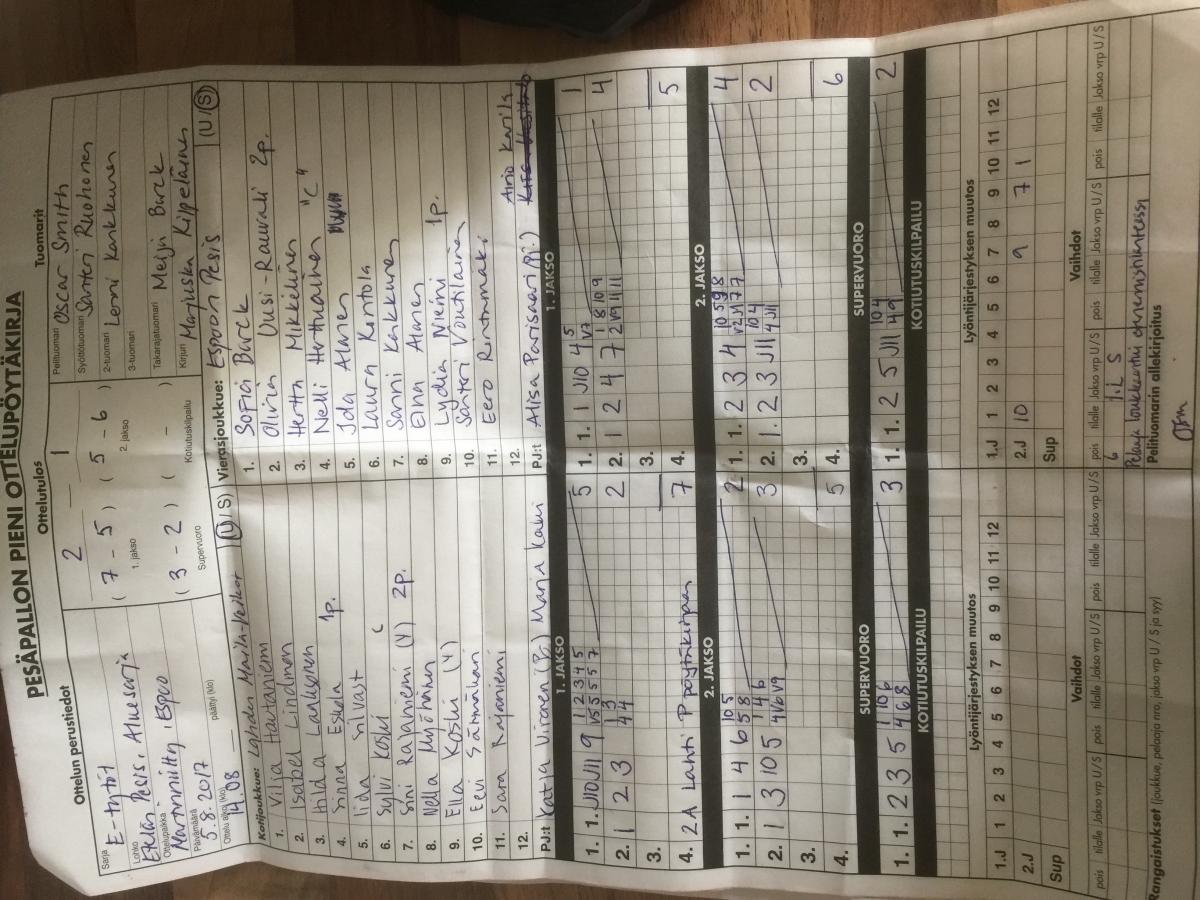 PESÄPALLON PIENI OTTELUPÖYTÄKIRJA
Ottelun perustiedot
Sarja E-tytöt
Lohko Etelän Pesis, Aluesarja
Ottelupaikka Espoo
Päivämäärä 5.8.2017
Ottelu alkoi (klo) 14.08 päättyi (klo)
Ottelutulos
2 1
( 7 - 5 ) ( 5 - 6 )
1. jakso 2. jakso
( 3 - 2 ) ( - )
Supervuoro Kotiutuskilpailu
Tuomarit
Pelituomari Oscar Smith
Syöttötuomari Santeri Ruohonen
2-tuomari Lenni Karkkunen
3-tuomari
Takarajatuomari Meiju Burck
Kirjuri Marjuska Kilpeläinen
Kotijoukkue: Lahden Maila-Veikot (U/S)
1. Vilja Hautaniemi
2. Isabel Lindman
3. Hilda Lankonen
4. Sinna Eskola 1p.
5. Iida Silvast
6. Sylvi Koski C
7. Sini Rajaniemi (V) 2p.
8. Nella Myöhänen
9. Ella Koski (V)
10. Eevi
11. Sara Rajaniemi
12.
PJ:t Katja Vironen (PJ) Marja Kaki
Vierasjoukkue: Espoon Pesis (U/S)
1. Sofia Burck
2. Olivia Uusi-Rauvali 2p.
3. Hertta Mikkelinen
4. Nelli Huttunainen "C"
5. Ida Alanen
6. Laura Kontola
7. Sanni Karkkunen
8. Elna Alanen
9. Lydia Niemi 1p.
10. Santeri Voutilainen
11. Eero Rintamäki
12.
PJ:t Alisa Parisnari (PJ.) Airio Karila
1. JAKSO 1. JAKSO
1. 1. J10 J11 9 1 2 3 4 5 5
V5 5 5 5 7
1. 1. 1 J10 4 5 1
V7
2. 1 2 3 1 3 2
4 4
2. 1 2 4 7 1 8 10 9 4
2 V9 11 11
3. 3.
4. 2A Lahti Pöytäkirjaan 7
4. 5
2. JAKSO 2. JAKSO
1. 1. 1 4 6 10 5 2
5 8
1. 1. 2 3 4 10 5 9 8 4
V2 J1 7 7
2. 1 3 10 5 1 4 6 3
4 V6 V9
2. 1. 2 3 J11 10 4 2
4 J11
3. 3.
4. 5
4. 6
SUPERVUORO SUPERVUORO
1. 1. 2 3 5 1 10 6 3
4 6 8
1. 1. 2 5 J11 10 4 2
4 9
KOTIUTUSKILPAILU KOTIUTUSKILPAILU
Lyöntijärjestyksen muutos
1 2 3 4 5 6 7 8 9 10 11 12
1.J
2.J
Sup
Lyöntijärjestyksen muutos
1 2 3 4 5 6 7 8 9 10 11 12
1.J
2.J 10 9 7 1
Sup
Vaihdot
pois tilalle Jakso vrp U/S pois tilalle Jakso vrp U/S pois tilalle Jakso vrp U/S
Vaihdot
pois tilalle Jakso vrp U/S pois tilalle Jakso vrp U/S pois tilalle Jakso vrp U/S
6 1. S
Pelaaja loukkaantui
Rangaistukset (joukkue, pelaaja nro, jakso vrp U / S ja syy)
Pelituomarin allekirjoitus